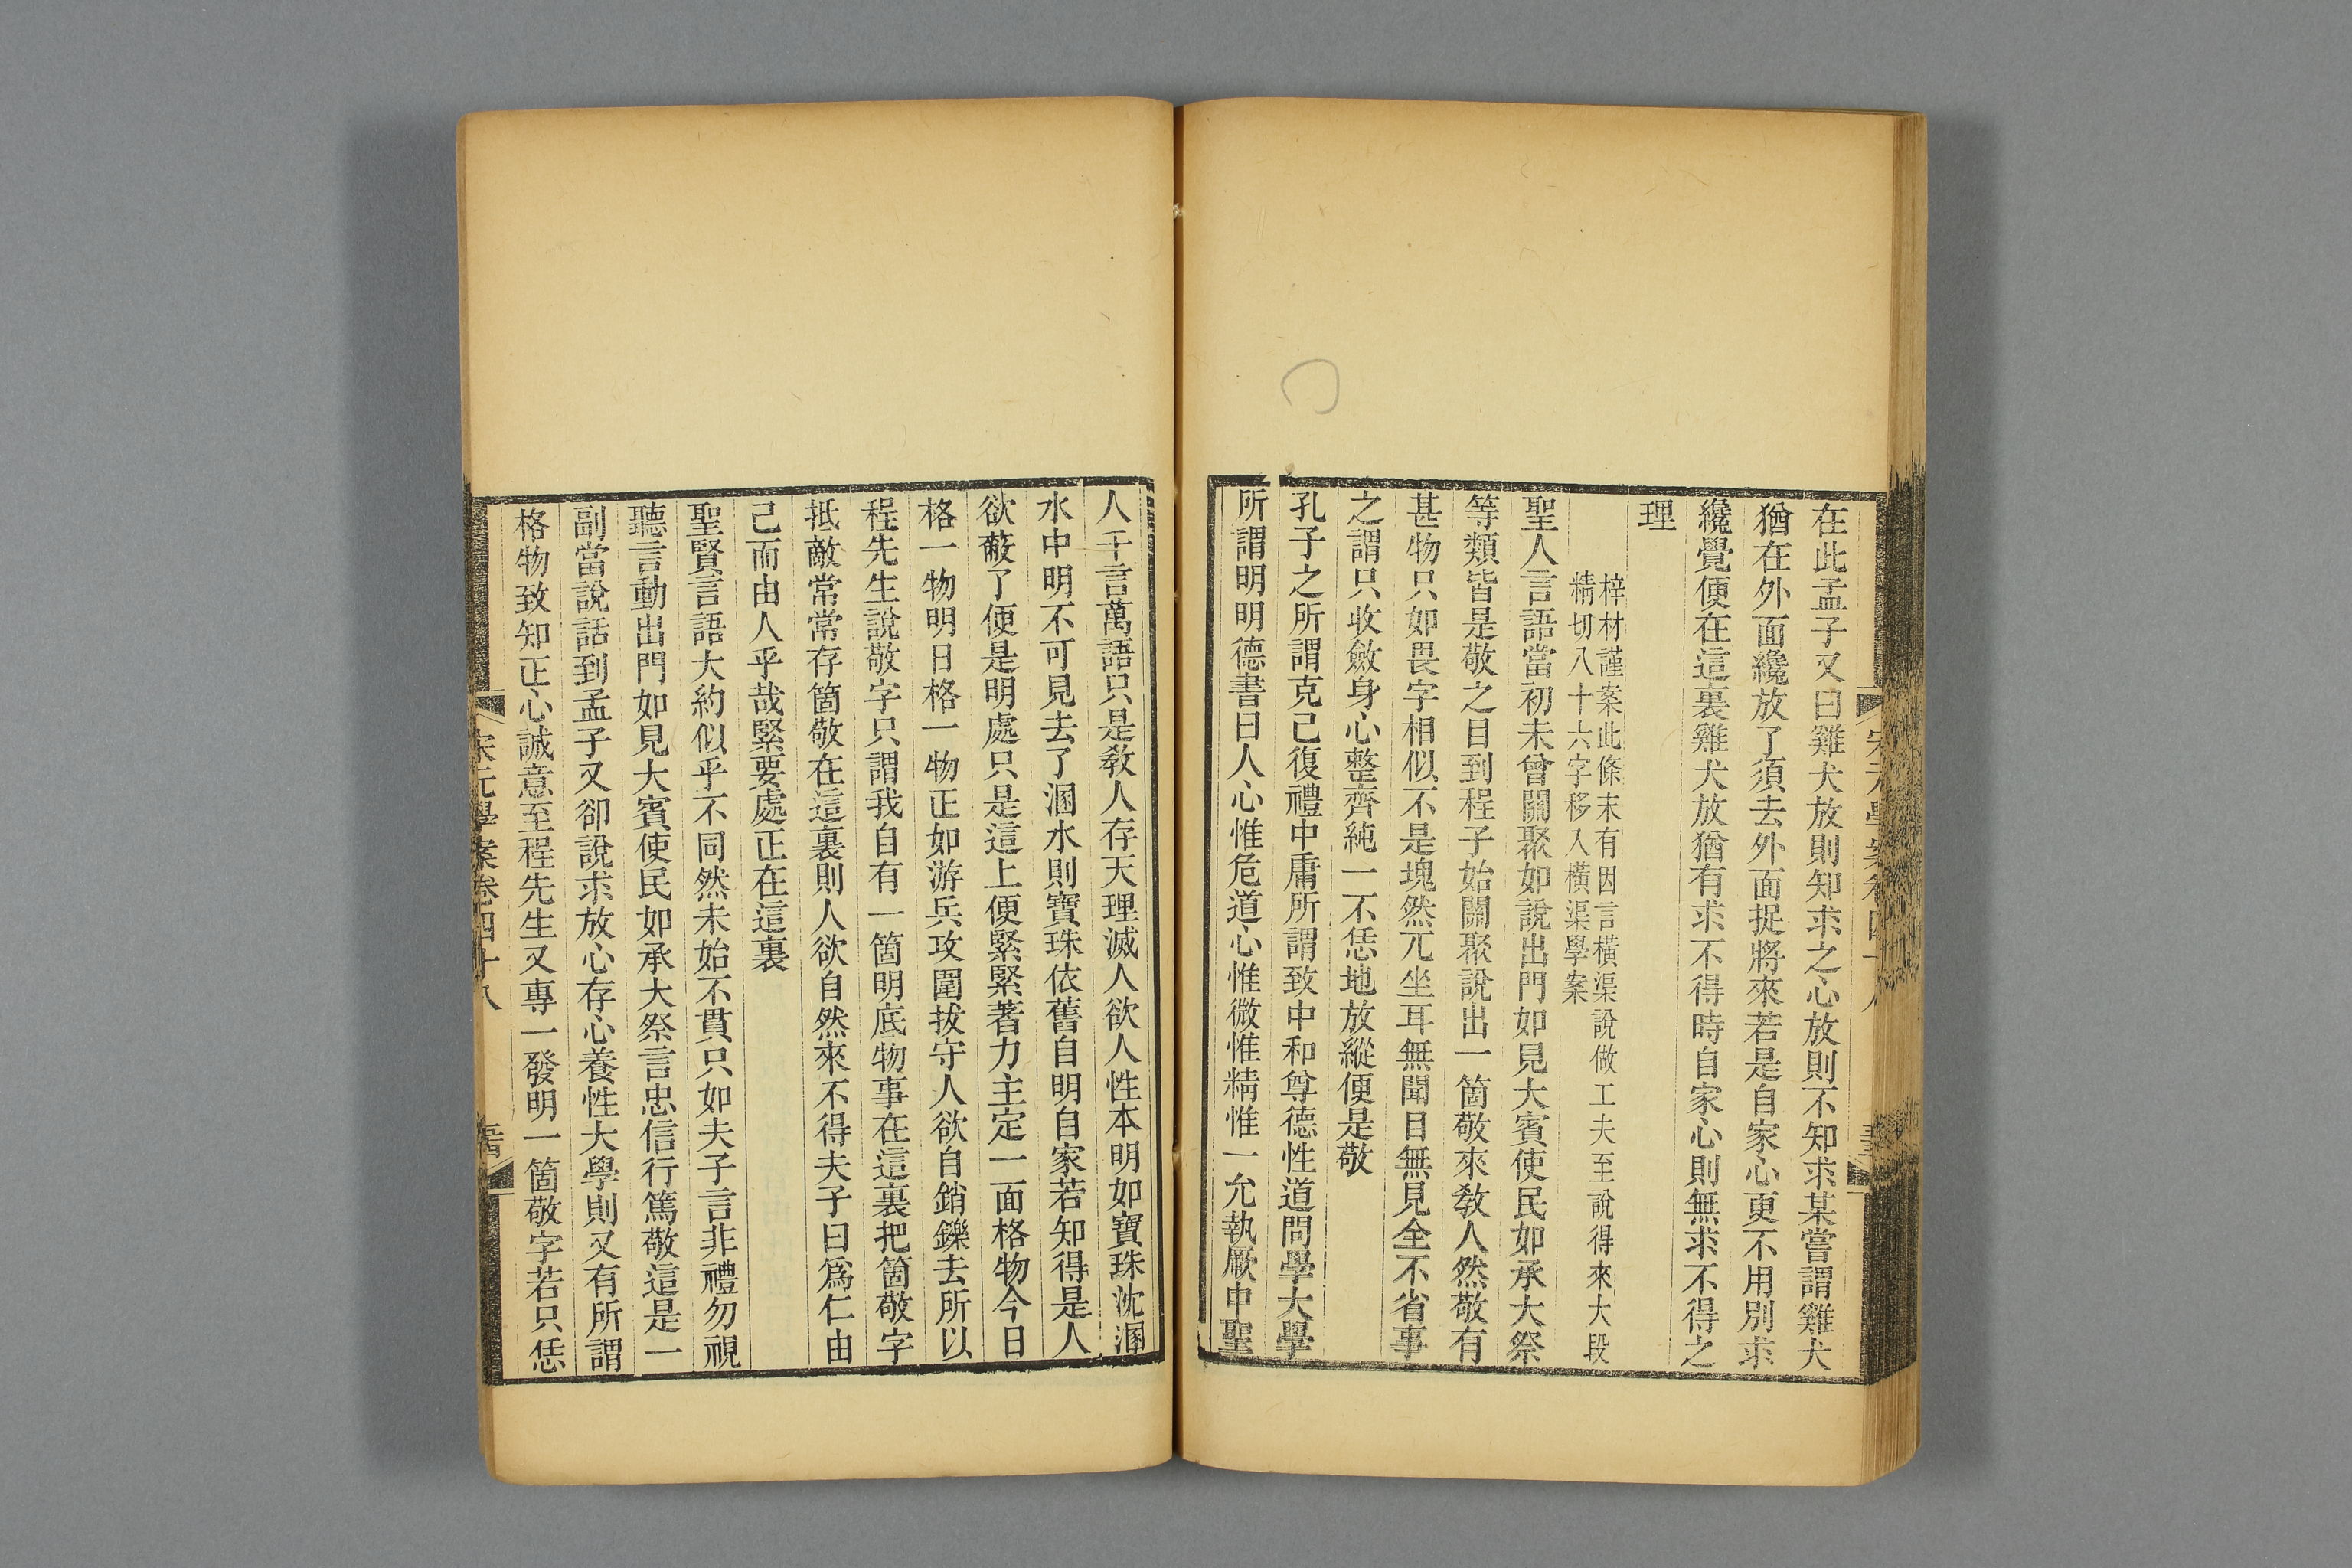 在此孟子又曰雞犬放則知求之心放則不知求某嘗謂雞犬
猶在外面纔放了須去外面捉將來若是自家心更不用別求
纔覺便在這裏雞犬放猶有求不得時自家心則無求不得之
理
梓材謹案此條末有因言橫渠說做工夫至說得來大段
精切八十六字移入橫渠學案
聖人言語當初未曾關聚如說出門如見大賓使民如承大祭
等類皆是敬之目到程子始關聚說出一箇敬來敎人然敬有
甚物只如畏字相似不是塊然兀坐耳無聞目無見全不省事
之謂只收斂身心整齊純一不恁地放縱便是敬
孔子之所謂克己復禮中庸所謂致中和尊德性道問學大學
所謂明明德書曰人心惟危道心惟微惟精惟一允執厥中聖
人千言萬語只是敎人存天理滅人欲人性本明如寶珠沈溷
水中明不可見去了溷水則寶珠依舊自明自家若知得是人
欲蔽了便是明處只是這上便緊緊著力主定一面格物今日
格一物明日格一物正如游兵攻圍拔守人欲自銷鑠去所以
程先生說敬字只謂我自有一箇明底物事在這裏把箇敬字
抵敵常常存箇敬在這裏則人欲自然來不得夫子曰爲仁由
己而由人乎哉緊要處正在這裏
聖賢言語大約似乎不同然未始不貫只如夫子言非禮勿視
聽言動出門如見大賓使民如承大祭言忠信行篤敬這是一
副當說話到孟子又卻說求放心存心養性大學則又有所謂
格物致知正心誠意至程先生又專一發明一箇敬字若只恁
宋元學案卷四十八